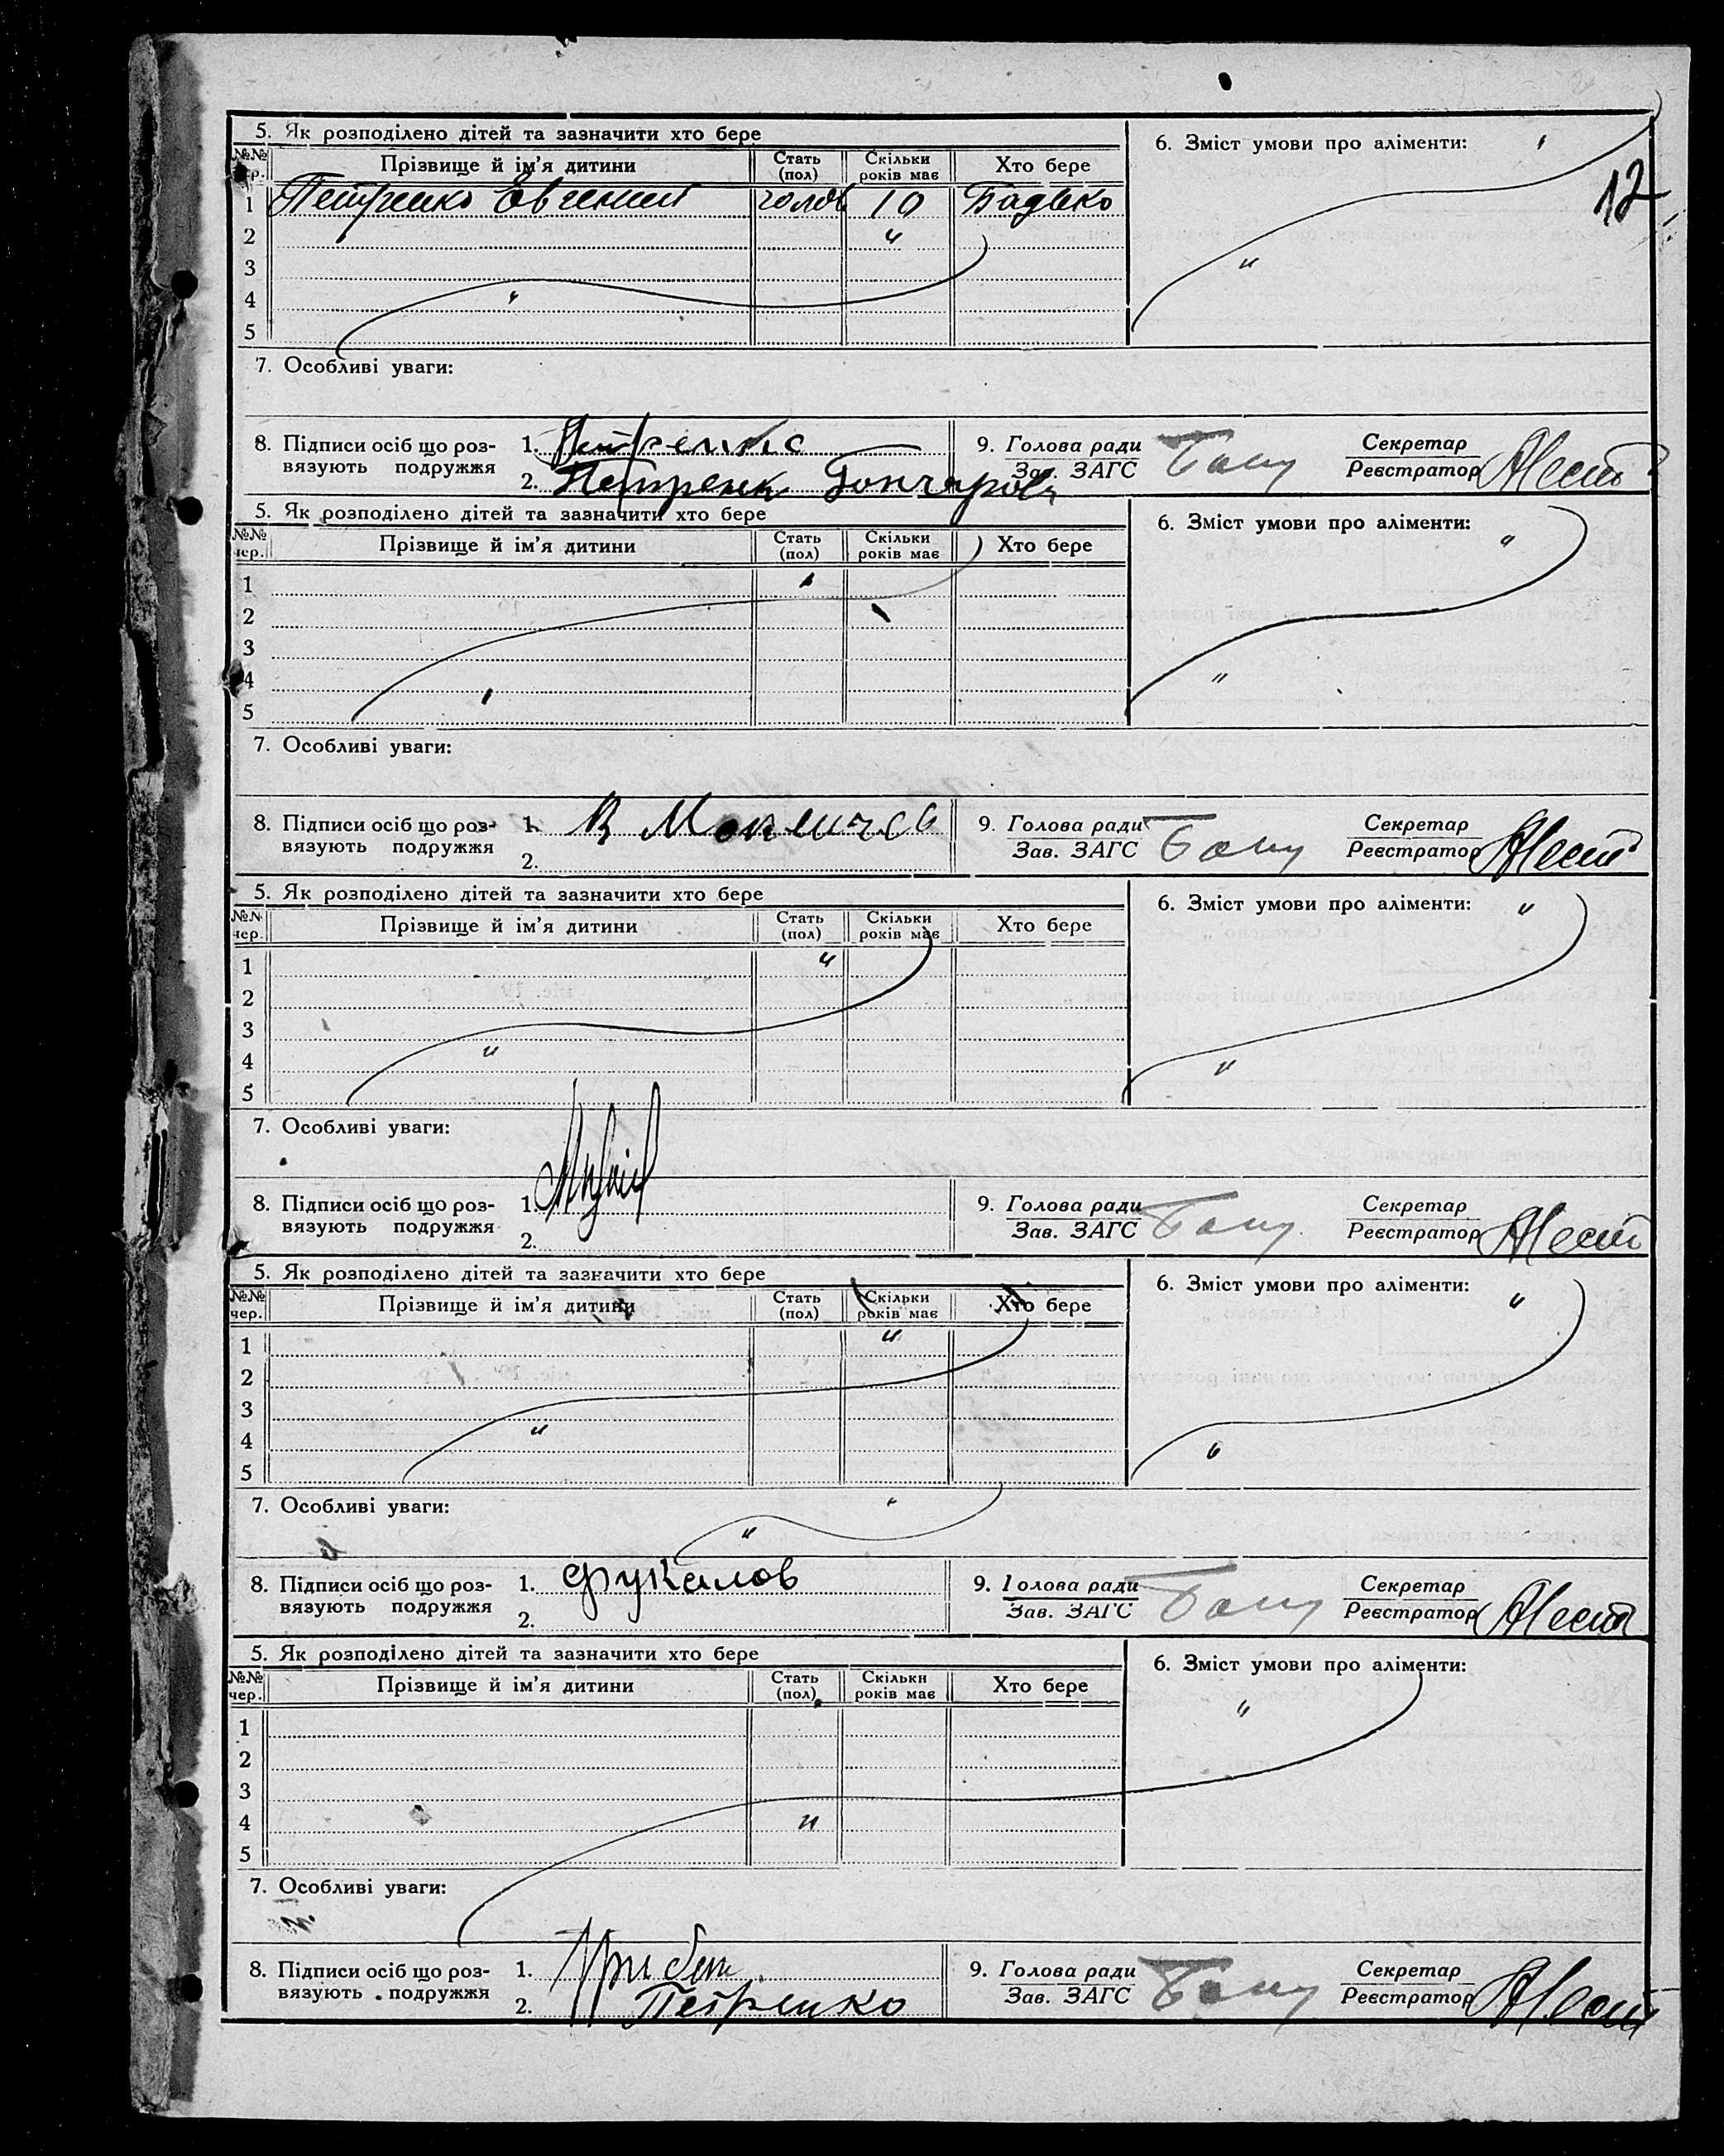 5. Як розподілено дітей та зазначити хто бере
6. Зміст умови про аліменти:
№№ чер. Прізвище й ім'я дитини Стать (пол) Скільки років має Хто бере
12
1 Петренко Євгений чолов 10 Батько
2
3
4
5
7. Особливі уваги:
8. Підписи осіб що роз-вязують подружжя
1. Петренко
2. Петренк Гончарова
9. Голова ради
Зав. ЗАГС
Секретар
Реєстратор
5. Як розподілено дітей та зазначити хто бере
6. Зміст умови про аліменти:
№№ чер. Прізвище й ім'я дитини Стать (пол) Скільки років має Хто бере
1
2
3
4
5
7. Особливі уваги:
8. Підписи осіб що роз-вязують подружжя
1.
2.
9. Голова ради
Зав. ЗАГС
Секретар
Реєстратор
5. Як розподілено дітей та зазначити хто бере
6. Зміст умови про аліменти:
№№ чер. Прізвище й ім'я дитини Стать (пол) Скільки років має Хто бере
1
2
3
4
5
7. Особливі уваги:
8. Підписи осіб що роз-вязують подружжя
1.
2.
9. Голова ради
Зав. ЗАГС
Секретар
Реєстратор
5. Як розподілено дітей та зазначити хто бере
6. Зміст умови про аліменти:
№№ чер. Прізвище й ім'я дитини Стать (пол) Скільки років має Хто бере
1
2
3
4
5
7. Особливі уваги:
8. Підписи осіб що роз-вязують подружжя
1. Фукалов
2.
9. Голова ради
Зав. ЗАГС
Секретар
Реєстратор
5. Як розподілено дітей та зазначити хто бере
6. Зміст умови про аліменти:
№№ чер. Прізвище й ім'я дитини Стать (пол) Скільки років має Хто бере
1
2
3
4
5
7. Особливі уваги:
8. Підписи осіб що роз-вязують подружжя
1.
2. Петренко
9. Голова ради
Зав. ЗАГС
Секретар
Реєстратор